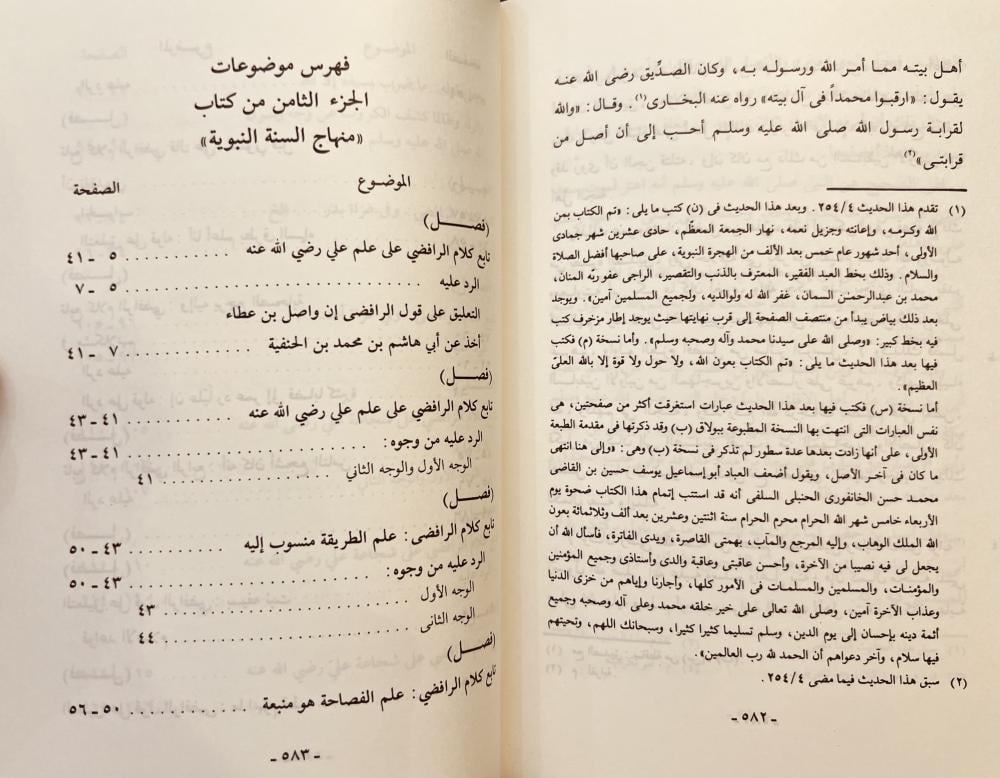 أهل بيته مما أمر الله ورسوله به، وكان الصدِّيق رضى الله عنه
يقول: «ارقبوا محمداً فى آل بيته» رواه عنه البخارى(١). وقال: «والله
لقرابة رسول الله صلى الله عليه وسلم أحب إلى أن أصل من
قرابتى»(٢)
(١) تقدم هذا الحديث ٢٥٤/٤. وبعد هذا الحديث فى (ن) كتب ما يلى: «تم الكتاب بمن
الله وكرمه، وإعانته وجزيل نعمه، نهار الجمعة المعظّم، حادى عشرين شهر جمادى
الأولى، أحد شهور عام خمس بعد الألف من الهجرة النبوية، على صاحبها أفضل الصلاة
والسلام. وذلك بخط العبد الفقير، المعترف بالذنب والتقصير، الراجى عفو ربّه المنان،
محمد بن عبدالرحمٰن السمان، غفر الله له ولوالديه، ولجميع المسلمين آمين». ويوجد
بعد ذلك بياض يبدأ من منتصف الصفحة إلى قرب نهايتها حيث يوجد إطار مزخرف كتب
فيه بخط كبير: «وصلى الله على سيدنا محمد وآله وصحبه وسلم». وأما نسخة (م) فكتب
فيها بعد هذا الحديث ما يلى: «تم الكتاب بعون الله، ولا حول ولا قوة إلا بالله العلىّ
العظيم».
أما نسخة (س) فكتب فيها بعد هذا الحديث عبارات استغرقت أكثر من صفحتين، هى
نفس العبارات التى انتهت بها النسخة المطبوعة ببولاق (ب) وقد ذكرتها فى مقدمة الطبعة
الأولى، على أنها زادت بعدها عدة سطور لم تذكر فى نسخة (ب) وهى: «وإلى هنا انتهى
ما كان فى آخر الأصل، ويقول أضعف العباد أبو إسماعيل يوسف حسين بن القاضى
محمد حسن الخانفورى الحنبلى السلفى أنه قد استتب إتمام هذا الكتاب ضحوة يوم
الأربعاء خامس شهر الله الحرام محرم الحرام سنة اثنتين وعشرين بعد ألف وثلاثمائة بعون
الله الملك الوهاب، وإليه المرجع والمآب، بهمتى القاصرة، ويدى الفاترة، فأسأل الله أن
يجعل لى فيه نصيبا من الآخرة، وأحسن عاقبتى وعاقبة والدى وأستاذى وجميع المؤمنين
والمؤمنات، والمسلمين والمسلمات فى الأمور كلها، وأجارنا وإياهم من خزى الدنيا
وعذاب الآخرة آمين، وصلى الله تعالى على خير خلقه محمد وعلى آله وصحبه وجميع
أئمة دينه بإحسان إلى يوم الدين، وسلم تسليما كثيرا كثيرا، وسبحانك اللهم، وتحيتهم
فيها سلام، وآخر دعواهم أن الحمد لله رب العالمين».
(٢) سبق هذا الحديث فيما مضى ٢٥٤/٤.
- ٥٨٢ -
فهرس موضوعات
الجزء الثامن من كتاب
«منهاج السنة النبوية»
الموضوع الصفحة
(فصل)
تابع كلام الرافضي على علم علي رضي الله عنه ........... ٥ - ٤١
الرد عليه ........... ٥ - ٧
التعليق على قول الرافضى إن واصل بن عطاء
أخذ عن أبي هاشم بن محمد بن الحنفية ........... ٧ - ٤١
(فصل)
تابع كلام الرافضي على علم علي رضي الله عنه ........... ٤١ - ٤٣
الرد عليه من وجوه: ........... ٤١ - ٤٣
الوجه الأول والوجه الثاني ........... ٤١
(فصل)
تابع كلام الرافضي: علم الطريقة منسوب إليه ........... ٤٣ - ٥٠
الرد عليه من وجوه: ........... ٤٣ - ٥٠
الوجه الأول ........... ٤٣
الوجه الثانى ........... ٤٤
(فصل)
تابع كلام الرافضي: علم الفصاحة هو منبعة ........... ٥٠ - ٥٦
- ٥٨٣ -